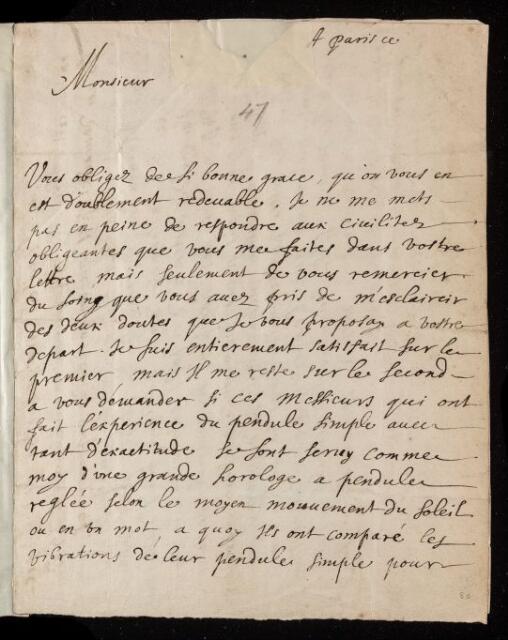 A Paris ce
Monsieur
47
Vous obligez de si bonne grace, qu'on vous en
est doublement redeuable. Je ne me mets
pas en peine de respondre aux ciuilitez
obligeantes que vous me faites dans vostre
lettre mais seulement de vous remercier
du soing que vous auez pris de m'esclaircir
des deux doutes que Je vous proposay a vostre
depart. Je suis entierement satisfait sur le
premier mais Il me reste sur le second
a vous demander si ces Messieurs qui ont
fait l'experience du pendule simple auec
tant d'exactitude se sont seruy comme
moy d'vne grande horologe a pendule
reglée selon le moyen mouuement du soleil
ou en vn mot a quoy Ils ont comparé les
vibrations de leur pendule simple pour